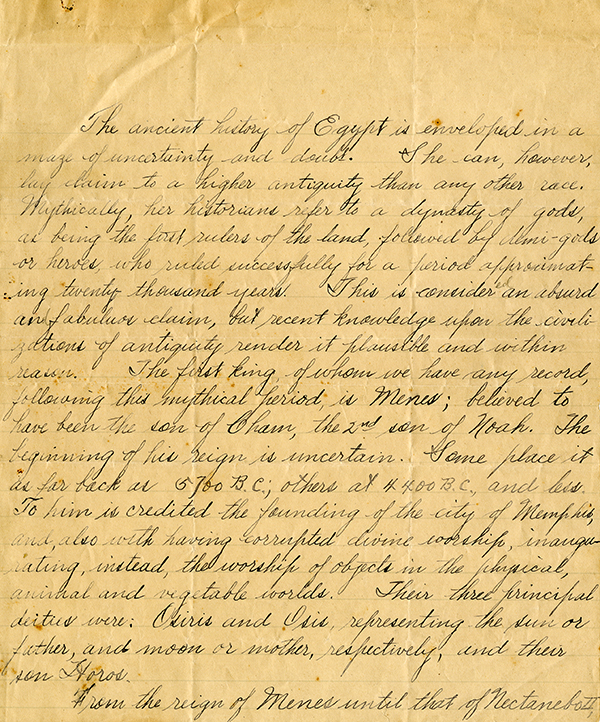 The ancient history of Egypt is enveloped in a
maze of uncertainty and doubt. She can, however,
lay claim to a higher antiquity than any other race.
Mythically, her historians refer to a dynasty of gods,
as being the first rulers of the land, followed by demi-gods
or heroes, who ruled successfully for a period approximat-
ing twenty thousand years. This is considered an absurd
and fabulous claim, but recent knowledge upon the civili-
zations of antiquity render it plausible and within
reason. The first king of whom we have any record,
following this mythical period, is Menes; believed to
have been the son of Cham, the 2nd son of Noah. The
beginning of his reign is uncertain. Some place it
as far back as 5700 B.C.; others at 4400 B.C., and less.
To him is credited the founding of the city of Memphis,
and, also with having corrupted divine worship, inaugu-
rating, instead, the worship of objects in the physical,
animal and vegetable worlds. Their three principal
deitus were: Osiris and Osis, representing the sun or
father, and moon or mother, respectively, and their
son Horos.
From the reign of Menes until that of Nectanebo II,